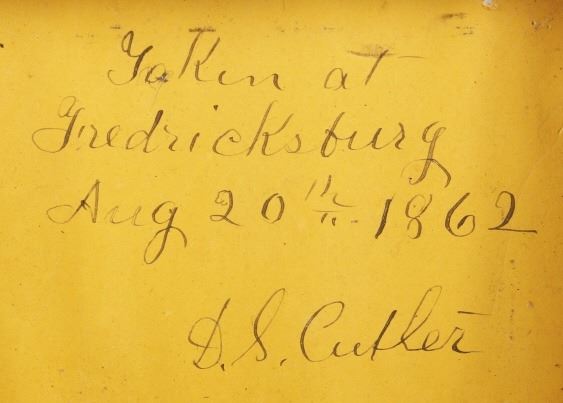 Taken at
Fredricksburg
Aug 20th 1862
D. S. Cutler